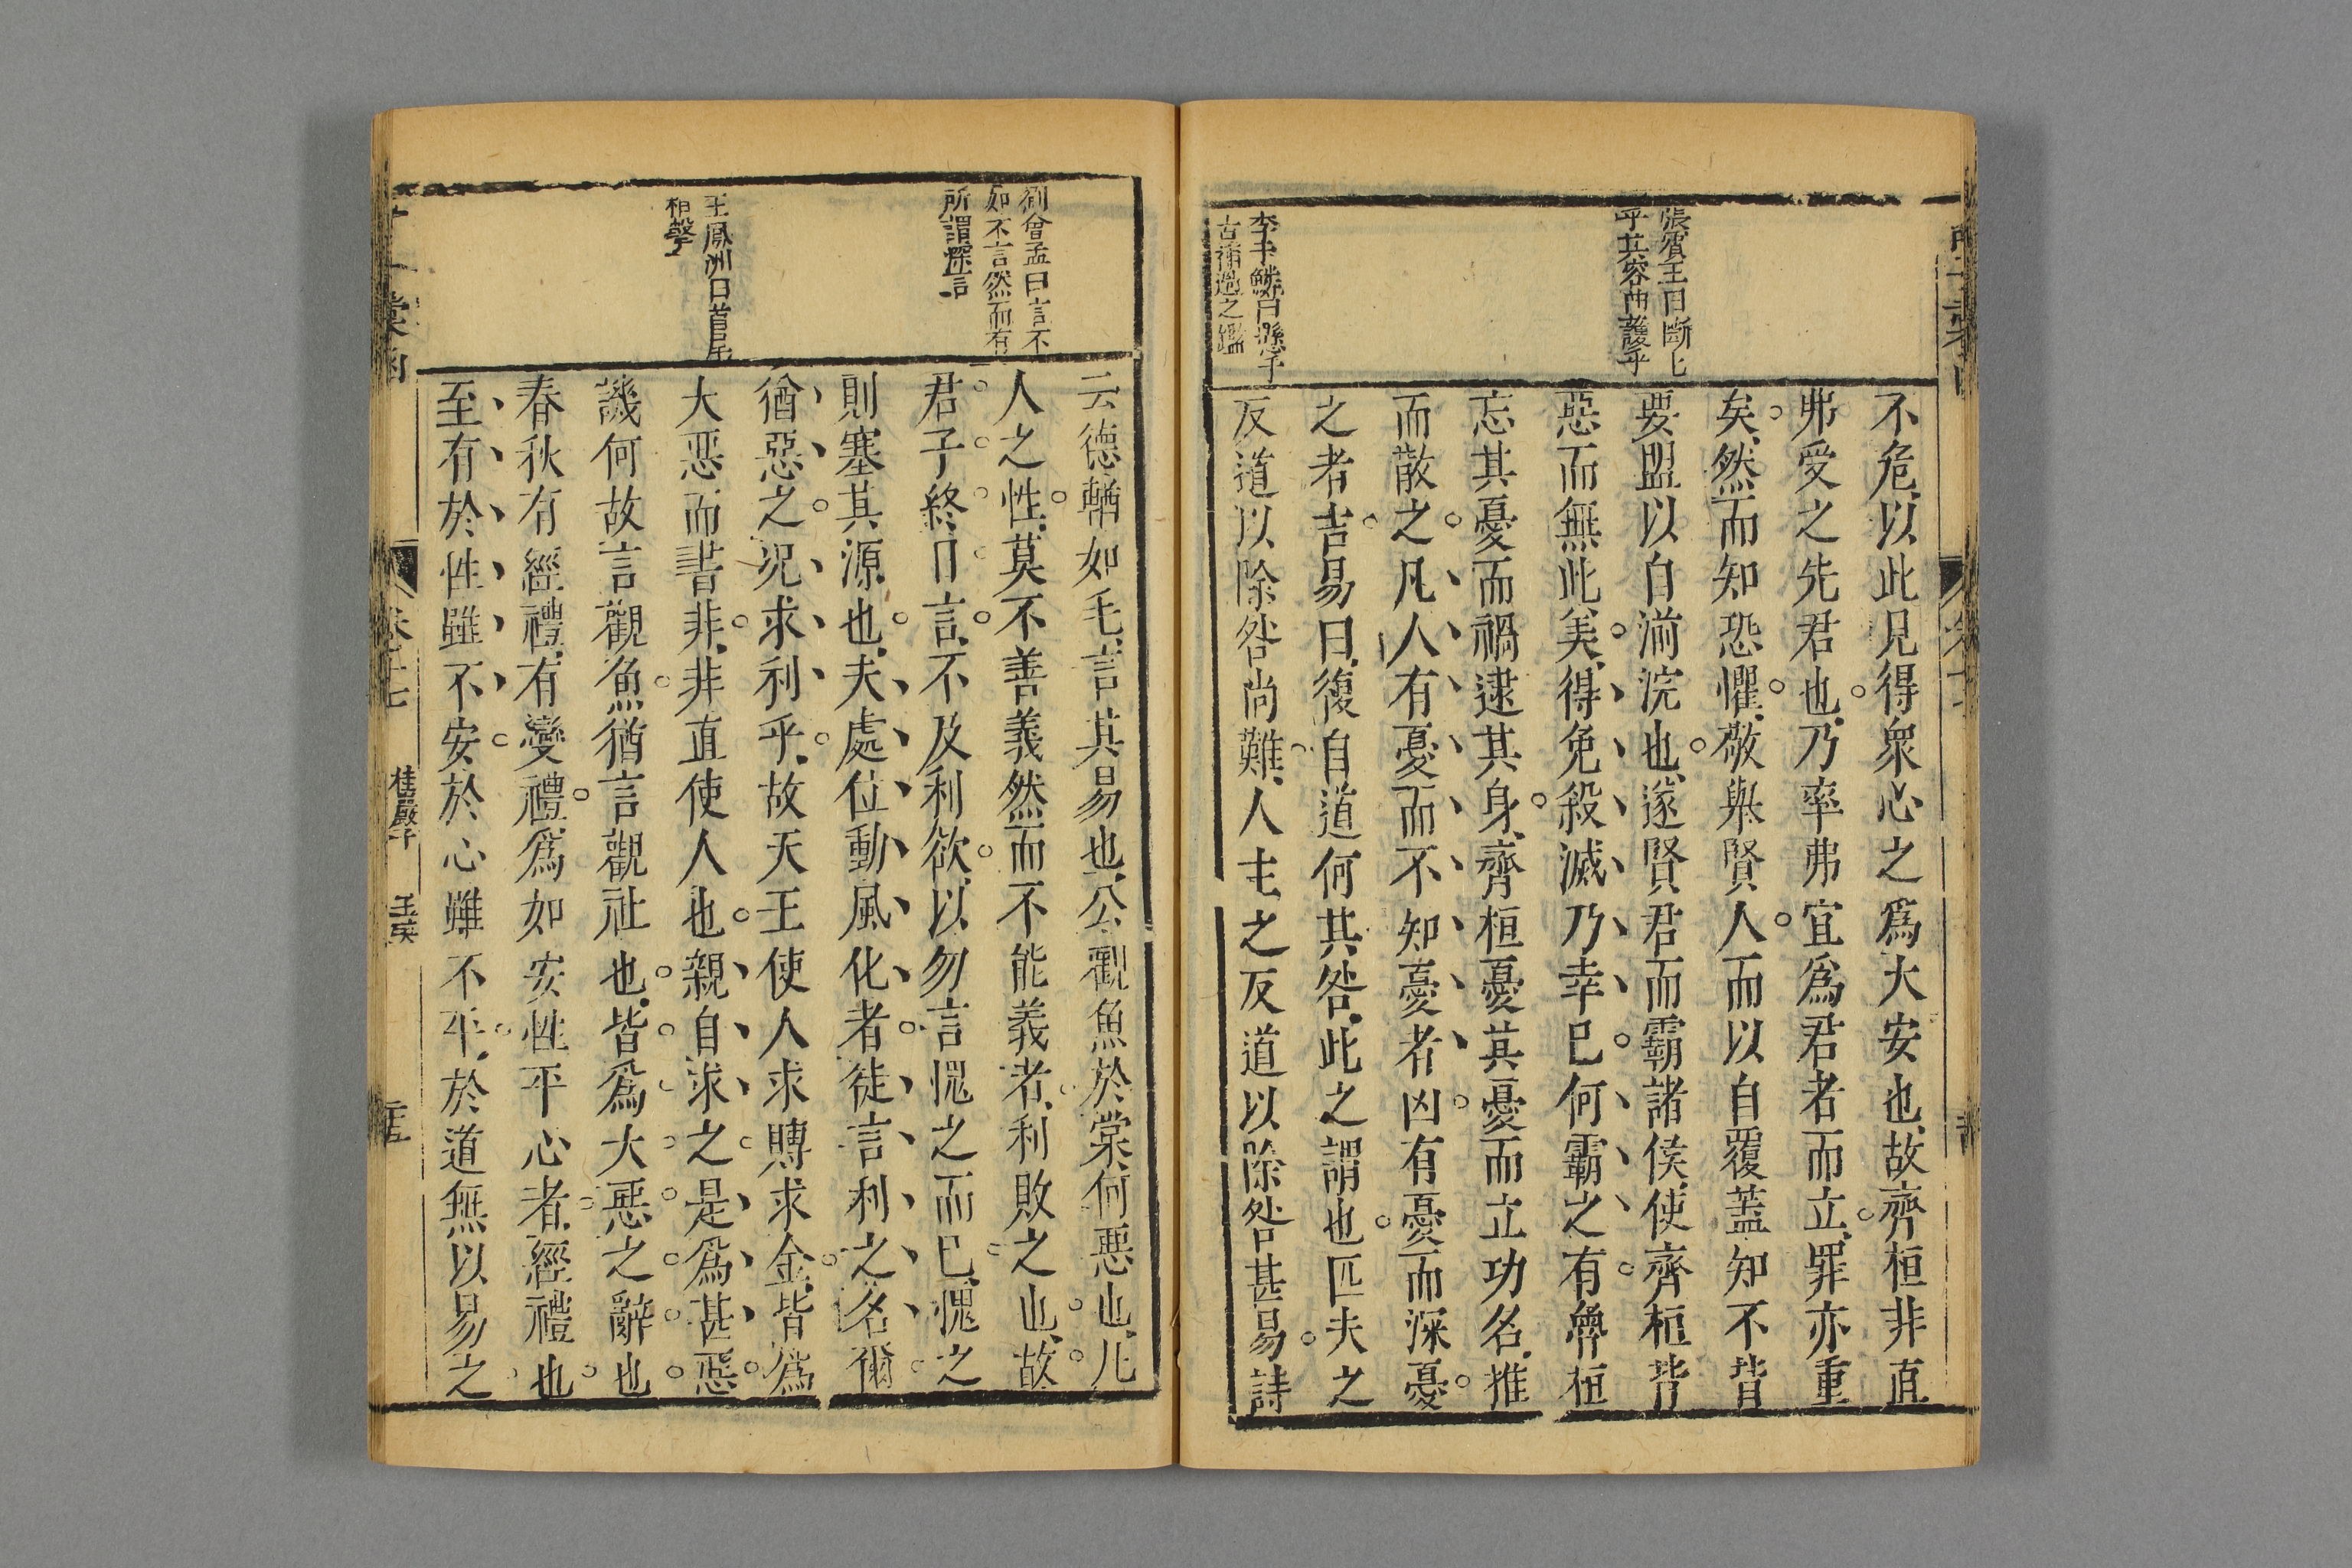 張賓王曰斷乚
乎其容曲護乎
李于鱗曰懸于
古補過之鑑
不危以此見得衆心之爲大安也故齊桓非直
弗受之先君也乃率弗宜爲君者而立罪亦重
矣然而知恐懼敬舉賢人而以自覆蓋知不背
要盟以自湔浣也遂賢君而霸諸侯使齊桓背
惡而無此美得免殺滅乃幸巳何霸之有魯桓
忘其憂而禍逮其身齊桓憂其憂而立功名推
而散之凡人有憂而不知憂者凶有憂而深憂
之者吉易曰復自道何其咎此之謂也匹夫之
反道以除咎尚難人主之反道以除咎甚易詩
劉會孟曰言不
如不言然而有
所謂深言
王鳳洲曰首尾
相聲
云德輶如毛言其易也公觀魚於棠何惡也凡
人之性莫不善義然而不能義者利敗之也故
君子終日言不及利欲以勿言愧之而巳愧之
則塞其源也夫處位動風化者徒言利之名爾
猶惡之況求利乎故天王使人求賻求金皆爲
大惡而書非非直使人也親自求之是爲甚惡
譏何故言觀魚猶言觀社也皆爲大惡之辭也
春秋有經禮有變禮爲如安性平心者經禮也
至有於性雖不安於心雖不平於道無以易之
卷十七
桂馨